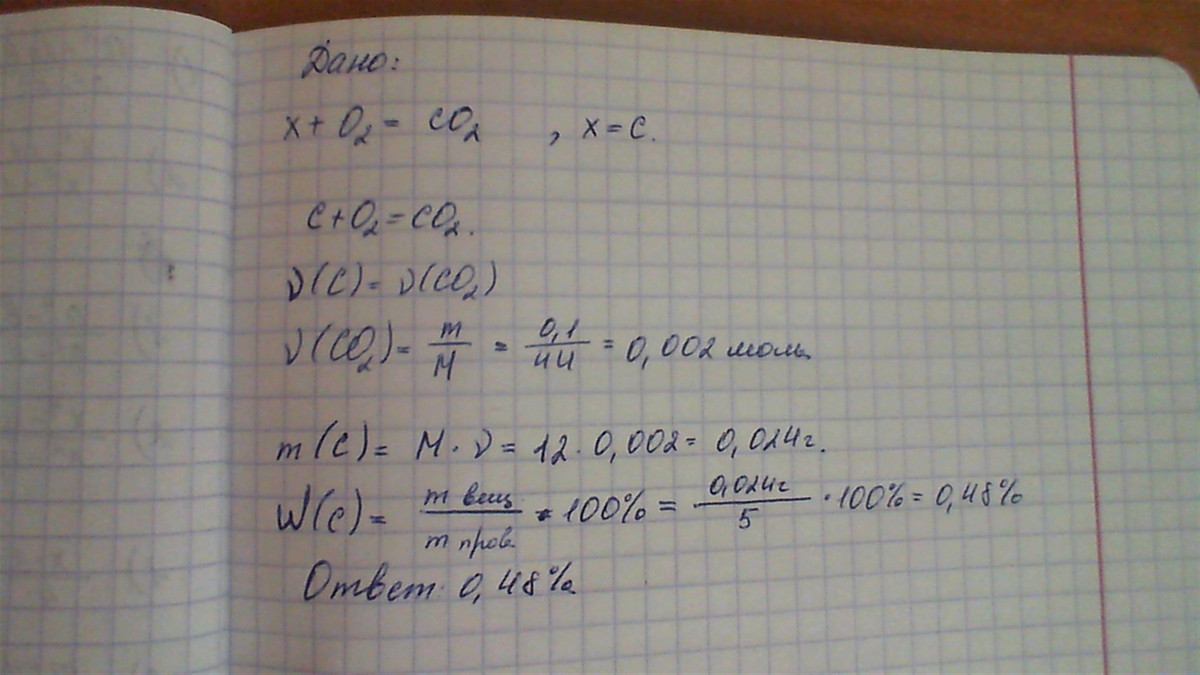 Дано:
x + O₂ = CO₂ , x = C.
C + O₂ = CO₂.
ν(C) = ν(CO₂)
ν(CO₂) = m/M = 0,1/44 = 0,002 моль
m(C) = M · ν = 12 · 0,002 = 0,024г.
W(C) = m вещ/m пров. · 100% = 0,024г/5 · 100% = 0,48%
Ответ: 0,48%